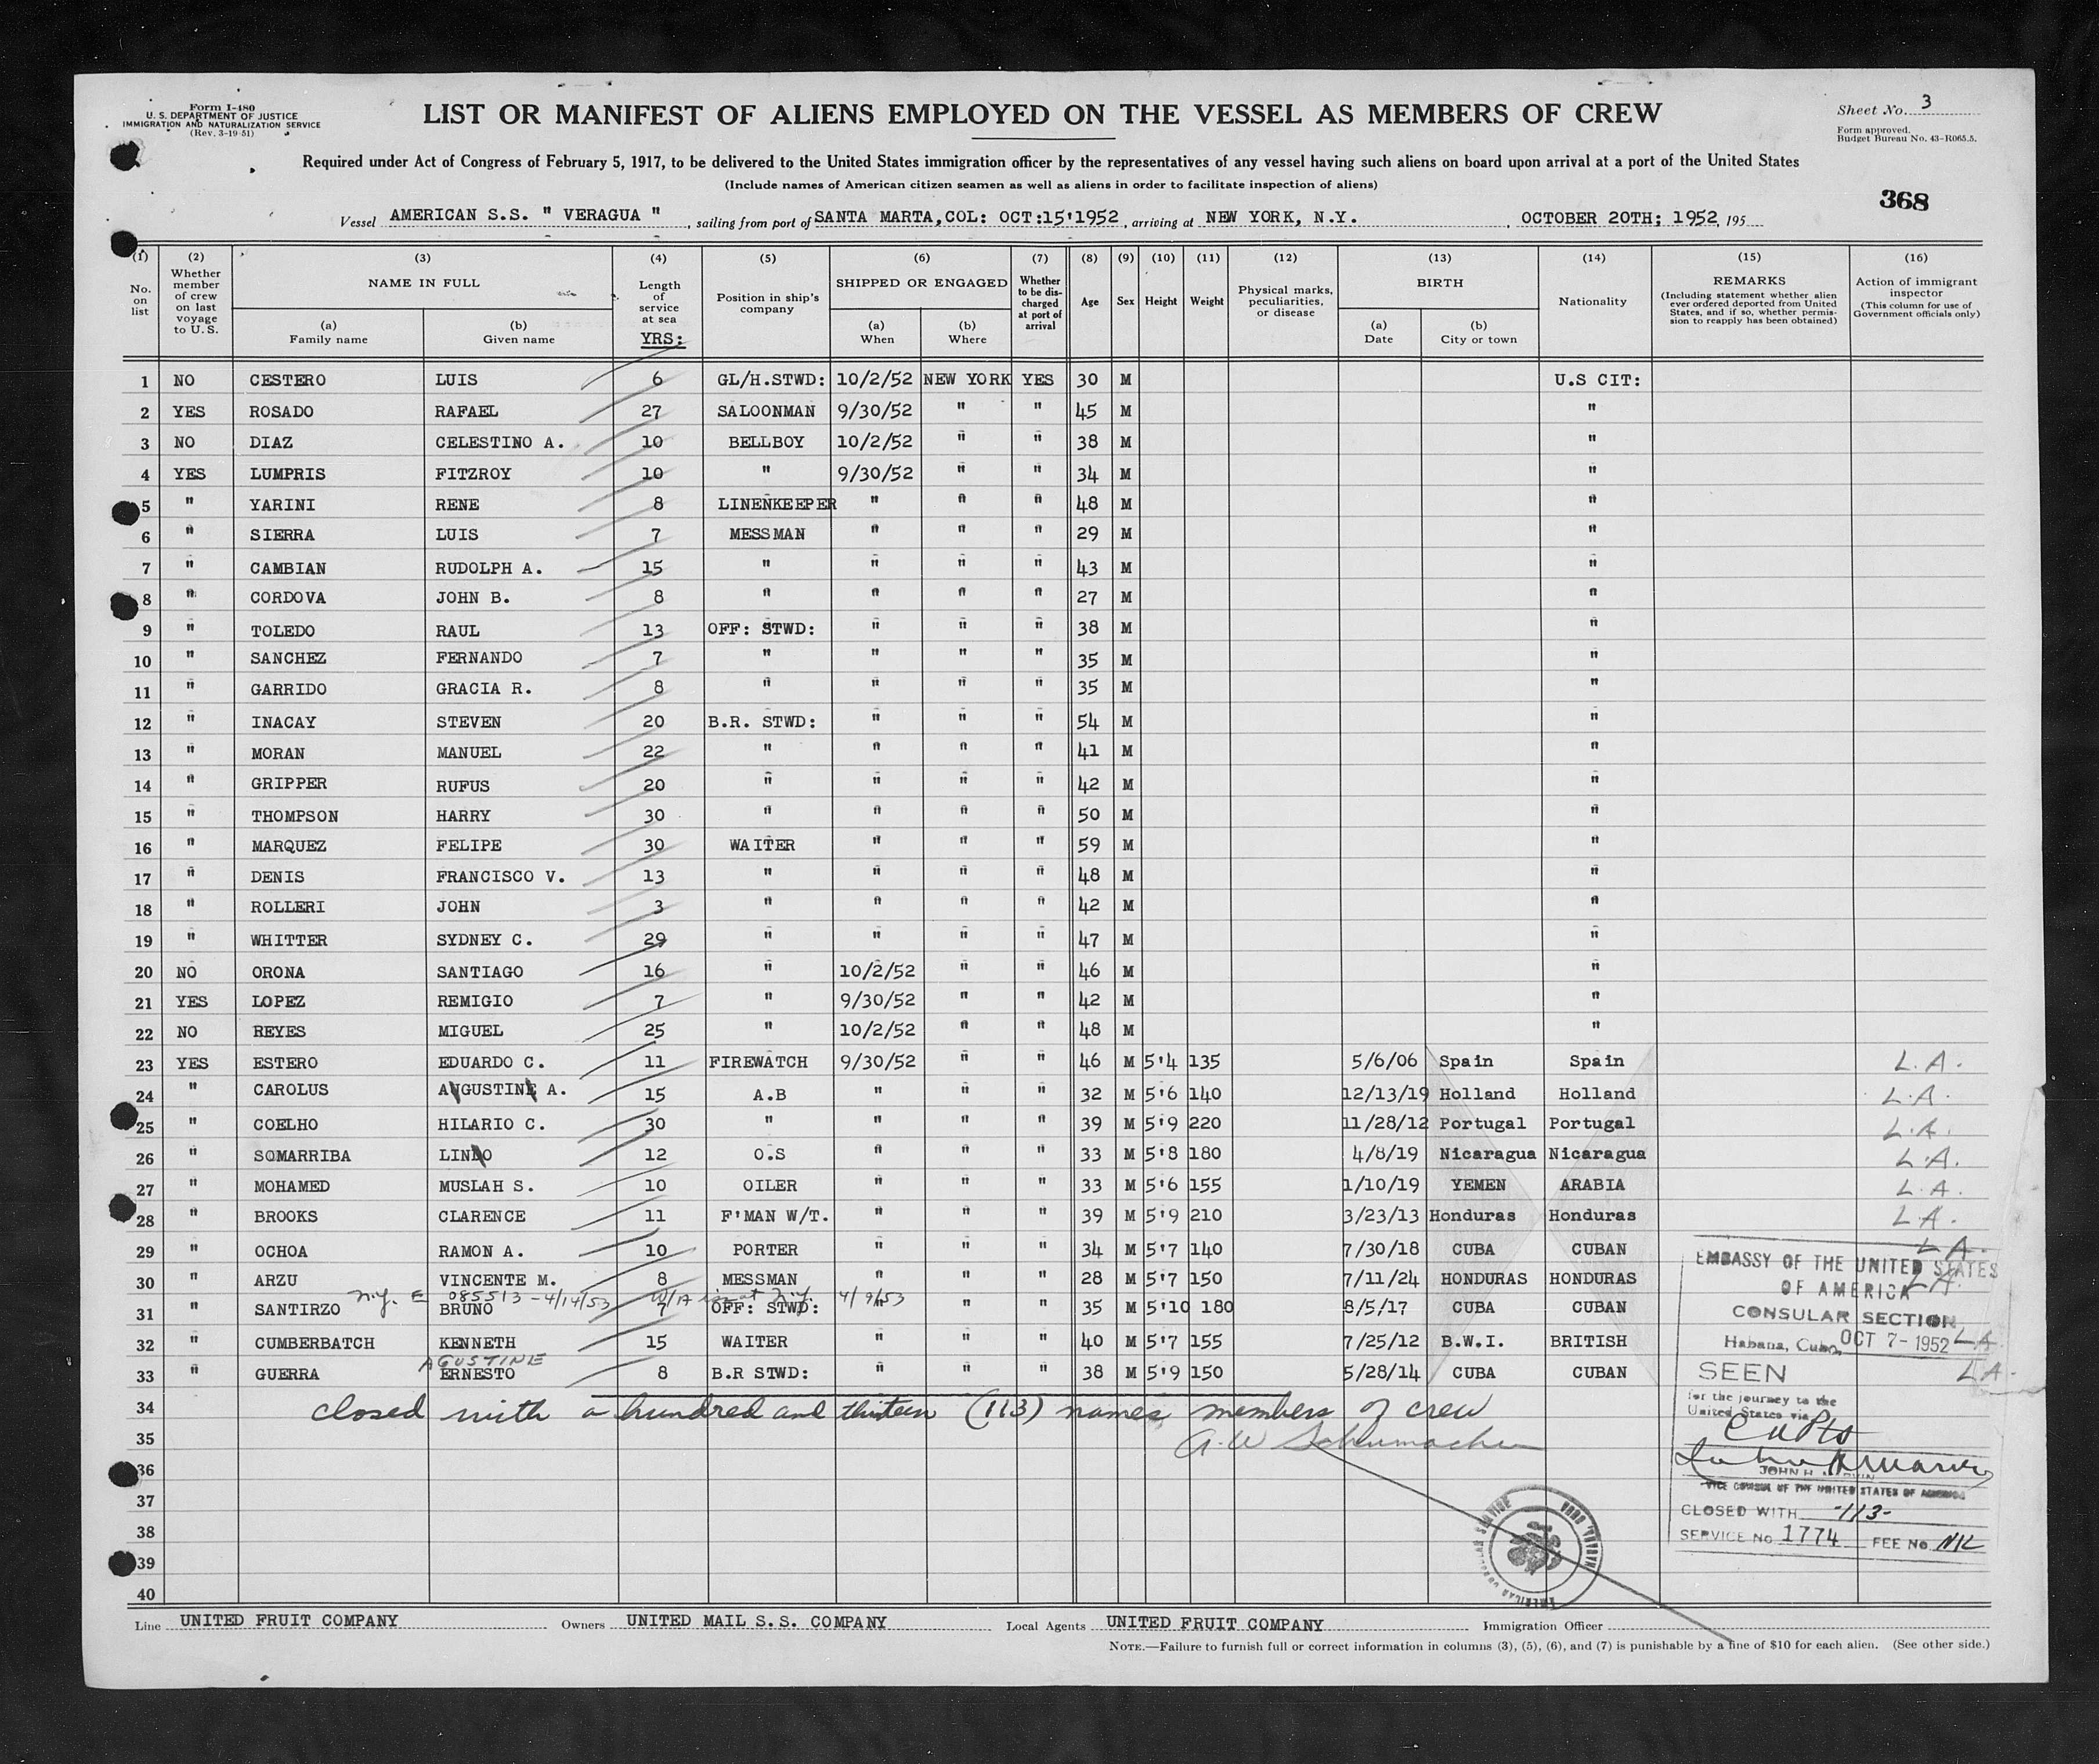 Form I-480
U. S. DEPARTMENT OF JUSTICE
IMMIGRATION AND NATURALIZATION SERVICE
(Rev. 3-19-51)
LIST OR MANIFEST OF ALIENS EMPLOYED ON THE VESSEL AS MEMBERS OF CREW
Sheet No. 3
Form approved.
Budget Bureau No. 43-R065.5.
Required under Act of Congress of February 5, 1917, to be delivered to the United States immigration officer by the representatives of any vessel having such aliens on board upon arrival at a port of the United States
(Include names of American citizen seamen as well as aliens in order to facilitate inspection of aliens)
368
Vessel AMERICAN S.S. " VERAGUA ", sailing from port of SANTA MARTA,COL: OCT:15'1952, arriving at NEW YORK, N.Y., OCTOBER 20TH; 1952, 195
(1) No. on list
(2) Whether member of crew on last voyage to U. S.
(3) NAME IN FULL (a) Family name (b) Given name
(4) Length of service at sea YRS:
(5) Position in ship's company
(6) SHIPPED OR ENGAGED (a) When (b) Where
(7) Whether to be discharged at port of arrival
(8) Age
(9) Sex
(10) Height
(11) Weight
(12) Physical marks, peculiarities, or disease
(13) BIRTH (a) Date (b) City or town
(14) Nationality
(15) REMARKS (Including statement whether alien ever ordered deported from United States, and if so, whether permission to reapply has been obtained)
(16) Action of immigrant inspector (This column for use of Government officials only)
1 NO CESTERO LUIS 6 GL/H.STWD: 10/2/52 NEW YORK YES 30 M U.S CIT:
2 YES ROSADO RAFAEL 27 SALOONMAN 9/30/52 " " 45 M "
3 NO DIAZ CELESTINO A. 10 BELLBOY 10/2/52 " " 38 M "
4 YES LUMPRIS FITZROY 10 " 9/30/52 " " 34 M "
5 " YARINI RENE 8 LINENKEEPER " " " 48 M "
6 " SIERRA LUIS 7 MESSMAN " " " 29 M "
7 " CAMBIAN RUDOLPH A. 15 " " " " 43 M "
8 " CORDOVA JOHN B. 8 " " " " 27 M "
9 " TOLEDO RAUL 13 OFF: STWD: " " " 38 M "
10 " SANCHEZ FERNANDO 7 " " " " 35 M "
11 " GARRIDO GRACIA R. 8 " " " " 35 M "
12 " INACAY STEVEN 20 B.R. STWD: " " " 54 M "
13 " MORAN MANUEL 22 " " " " 41 M "
14 " GRIPPER RUFUS 20 " " " " 42 M "
15 " THOMPSON HARRY 30 " " " " 50 M "
16 " MARQUEZ FELIPE 30 WAITER " " " 59 M "
17 " DENIS FRANCISCO V. 13 " " " " 48 M "
18 " ROLLERI JOHN 3 " " " " 42 M "
19 " WHITTER SYDNEY C. 29 " " " " 47 M "
20 NO ORONA SANTIAGO 16 " 10/2/52 " " 46 M "
21 YES LOPEZ REMIGIO 7 " 9/30/52 " " 42 M "
22 NO REYES MIGUEL 25 " 10/2/52 " " 48 M "
23 YES ESTERO EDUARDO C. 11 FIREWATCH 9/30/52 " " 46 M 5'4 135 5/6/06 Spain Spain L.A.
24 " CAROLUS AUGUSTINE A. 15 A.B " " " 32 M 5'6 140 12/13/19 Holland Holland L.A.
25 " COELHO HILARIO C. 30 " " " " 39 M 5'9 220 11/28/12 Portugal Portugal L.A.
26 " SOMARRIBA LINDO 12 O.S " " " 33 M 5'8 180 4/8/19 Nicaragua Nicaragua L.A.
27 " MOHAMED MUSLAH S. 10 OILER " " " 33 M 5'6 155 1/10/19 YEMEN ARABIA L.A.
28 " BROOKS CLARENCE 11 F'MAN W/T. " " " 39 M 5'9 210 3/23/13 Honduras Honduras L.A.
29 " OCHOA RAMON A. 10 PORTER " " " 34 M 5'7 140 7/30/18 CUBA CUBAN L.A.
30 " ARZU VINCENTE M. 8 MESSMAN " " " 28 M 5'7 150 7/11/24 HONDURAS HONDURAS L.A.
N.Y. E 085513 - 4/14/53 W/A at N.Y. 4/9/53
31 " SANTIRZO BRUNO 7 OFF: STWD: " " " 35 M 5'10 180 8/5/17 CUBA CUBAN
32 " CUMBERBATCH KENNETH 15 WAITER " " " 40 M 5'7 155 7/25/12 B.W.I. BRITISH L.A.
AGUSTINE
33 " GUERRA ERNESTO 8 B.R STWD: " " " 38 M 5'9 150 5/28/14 CUBA CUBAN L.A.
34 closed with a hundred and thirteen (113) names members of crew
35 A.W Schumacher
36
37
38
39
40
EMBASSY OF THE UNITED STATES
OF AMERICA
CONSULAR SECTION
Habana, Cuba, OCT 7 - 1952
SEEN
for the journey to the
United States via
JOHN H.
VICE CONSUL OF THE UNITED STATES OF AMERICA
CLOSED WITH -113-
SERVICE No 1774 FEE No Nil
AMERICAN CONSULAR SERVICE HABANA, CUBA
Line UNITED FRUIT COMPANY Owners UNITED MAIL S.S. COMPANY Local Agents UNITED FRUIT COMPANY Immigration Officer
NOTE.—Failure to furnish full or correct information in columns (3), (5), (6), and (7) is punishable by a fine of $10 for each alien. (See other side.)